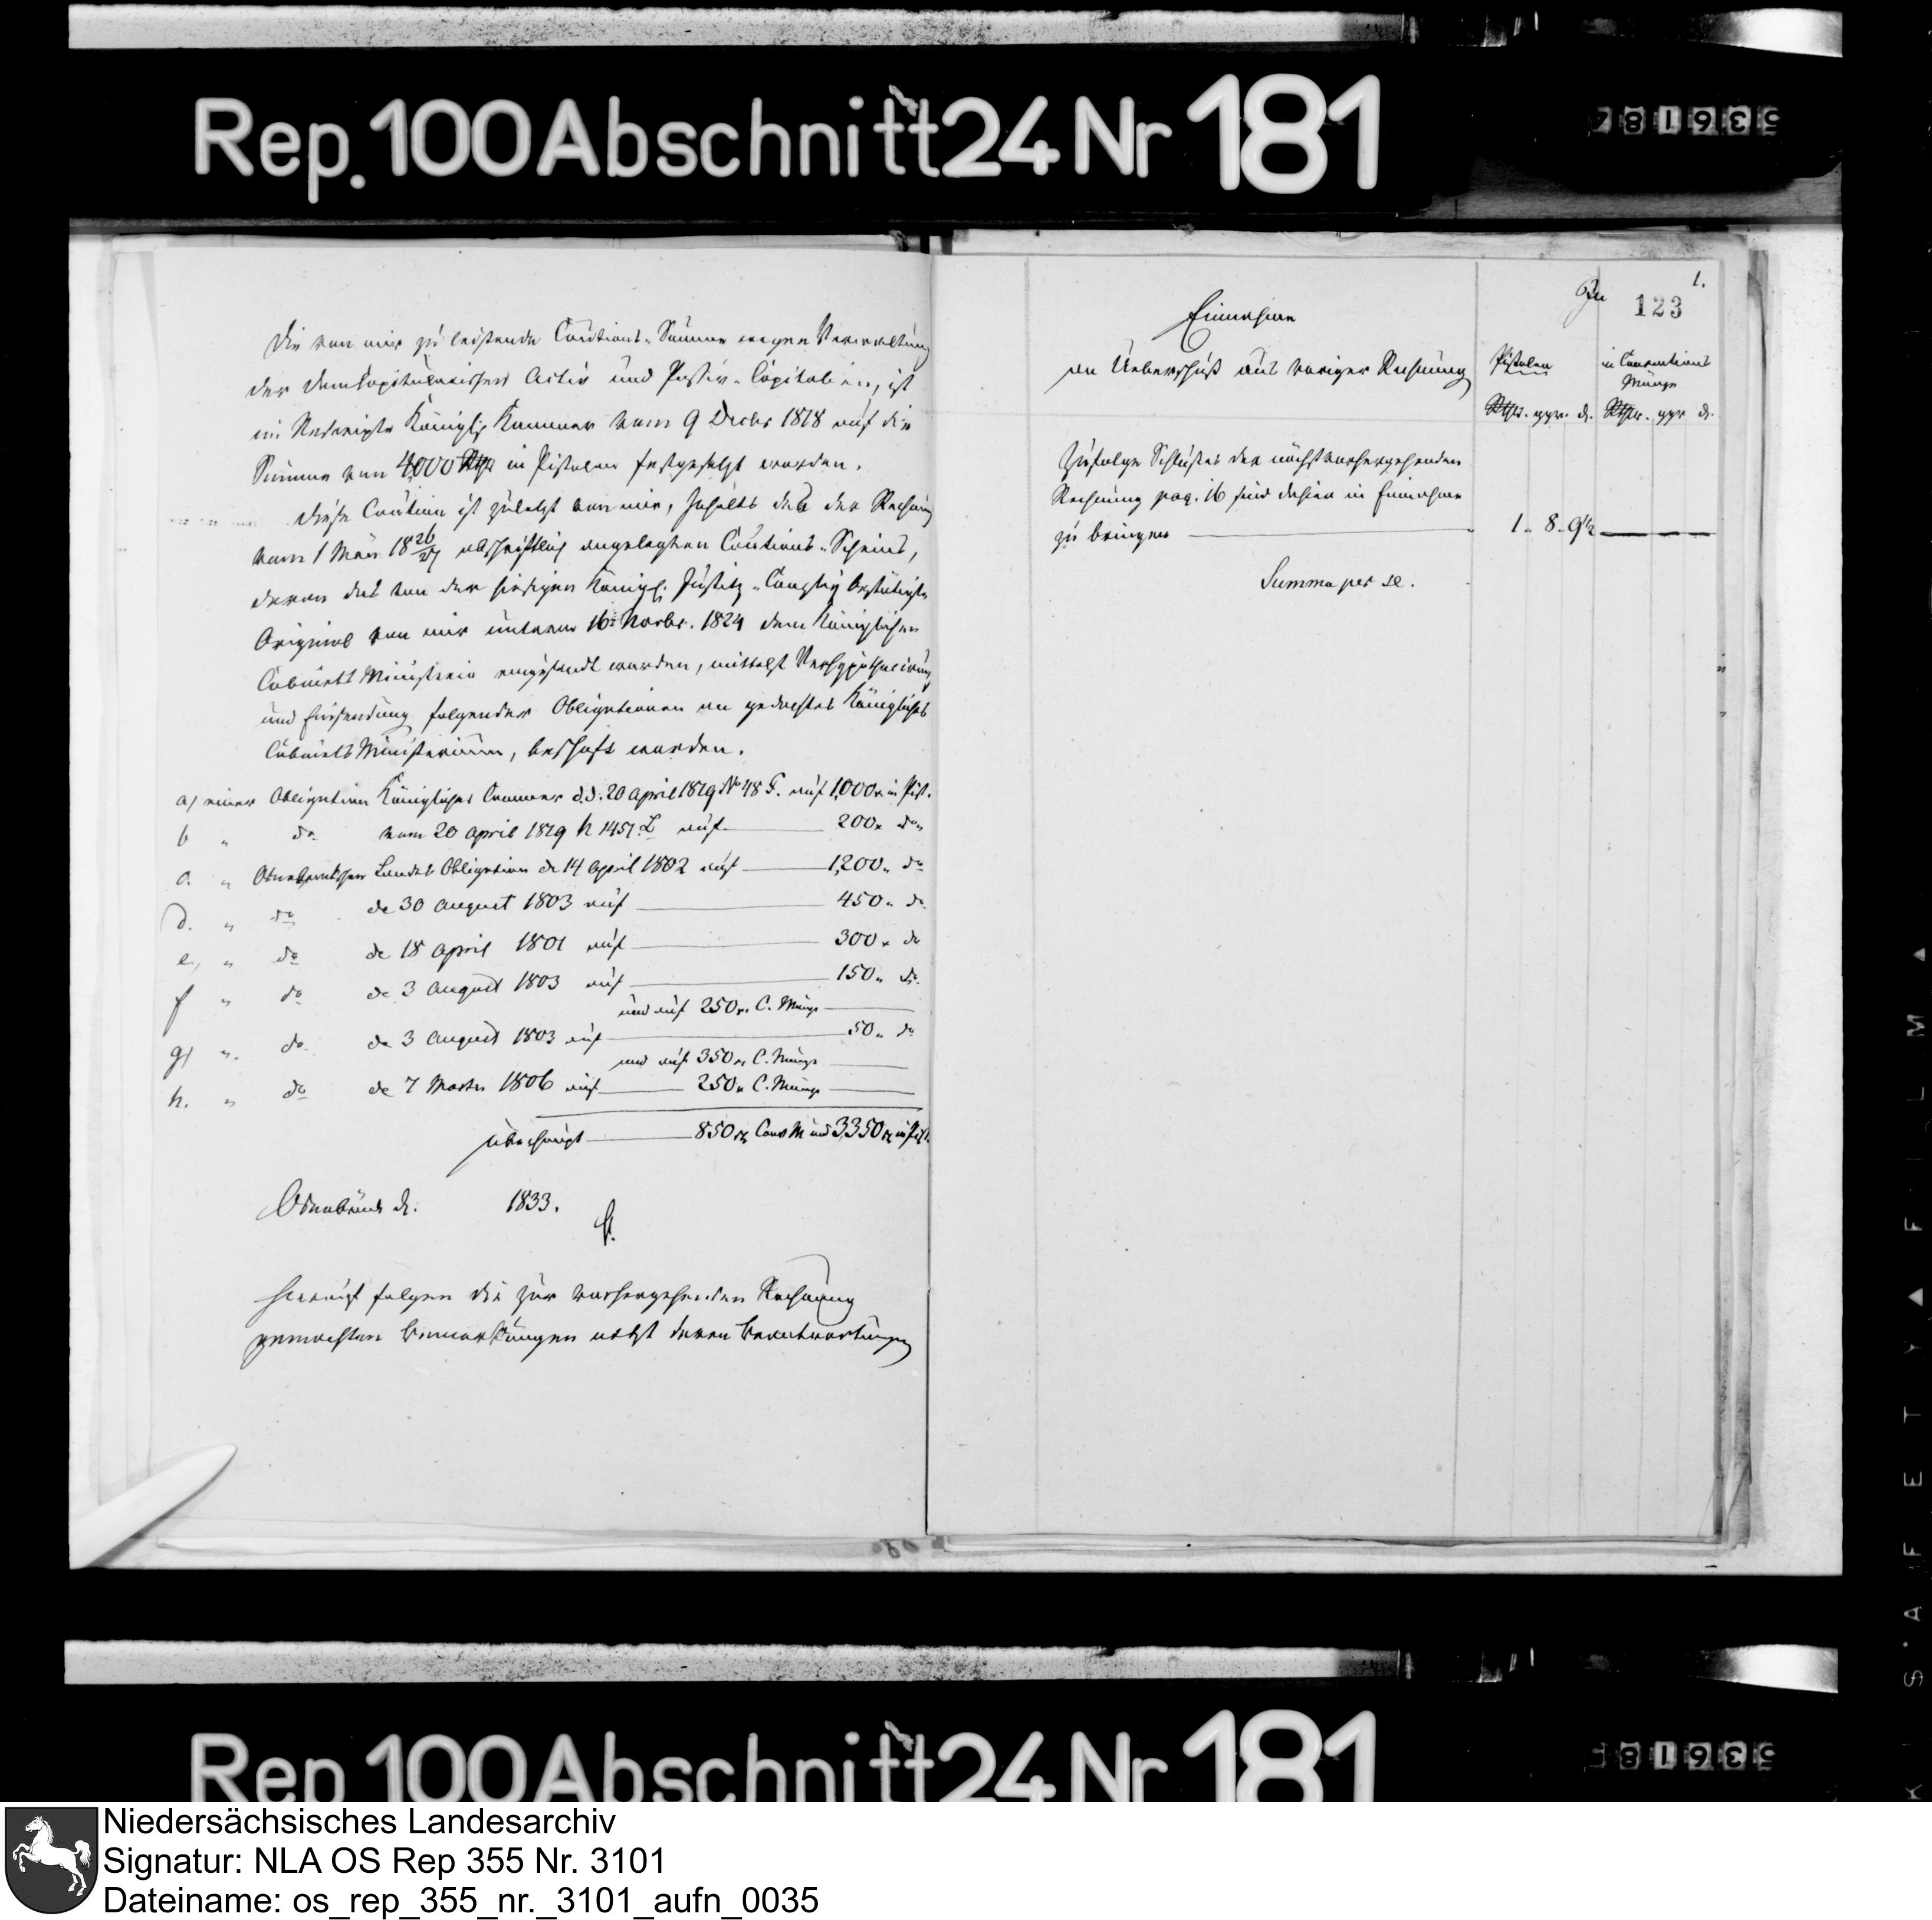 Rep. 100 Abschnitt 24 Nr 181
Die von mir zu leistende Cautions-Summe wegen Verwaltung
der domkapitularischen Activ und Passiv-Capitalien, ist
im Rescripte Königl. Kammer vom 9 Decbr 1818 auf die
Summe von 4000 Rthlr in Pistolen festgesetzt worden.
Diese Caution ist zuletzt von mir, Inhalts des der Rechnung
vom 1 Mai 1826/27 abschriftlich angelegten Cautions-Scheins,
davon das von der hiesigen Königl. Justitz-Canzley bestätigte
Original von mir unterm 16 Novbr. 1824 dem Königlichen
Cabinets Ministerio eingesandt worden, mittelst Verhypothecirung
und Einsendung folgender Obligationen an gedachtes Königliches
Cabinets Ministerium, beschafft worden.
a) einer Obligation Königlicher Cammer d.d. 20 April 1819 No 48 F. auf 1,000 r in Pist.
b " do vom 20 April 1819 N 1451. L auf 200 r do
c. " Osnabrückschen Landes Obligation de 14 April 1802 auf 1,200 " do
d. " do de 30 August 1803 auf 450 " do
e, " do de 18 April 1801 auf 300 r do
f " do de 3 August 1803 auf 150 " do
und auf 250 r. C. Münze
g) " do de 3 August 1803 auf 50 " do
und auf 350 r C. Münze
h. " do de 7 Martii 1806 auf 250 r C. Münze
überhaupt 850 r Conv M und 3,350 r in Pist.
Osnabrück d. 1833.
Hierauf folgen die zur vorhergehenden Rechnung
gemachten Bemerkungen nebst deren Beantwortungen
1.
In
123
Einnahme
an Ueberschuß aus voriger Rechnung
Pistolen
in Conventions
Münze
Rthlr. ggr. d. Rthlr. ggr d.
Zufolge Schlußes der nächstvorhergehenden
Rechnung pag. 16 sind dahier in Einnahme
zu bringen 1 - 8 - 9½
Summa per se.
Rep 100 Abschnitt 24 Nr 181
Niedersächsisches Landesarchiv
Signatur: NLA OS Rep 355 Nr. 3101
Dateiname: os_rep_355_nr._3101_aufn_0035